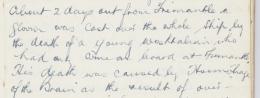 About 2 days out from Fremantle a
gloom was cast over the whole ship by
the death of a young Australian who
had only come on board at Fremantle
His death was caused by Hemorrhage
of the Brain as the result of over-